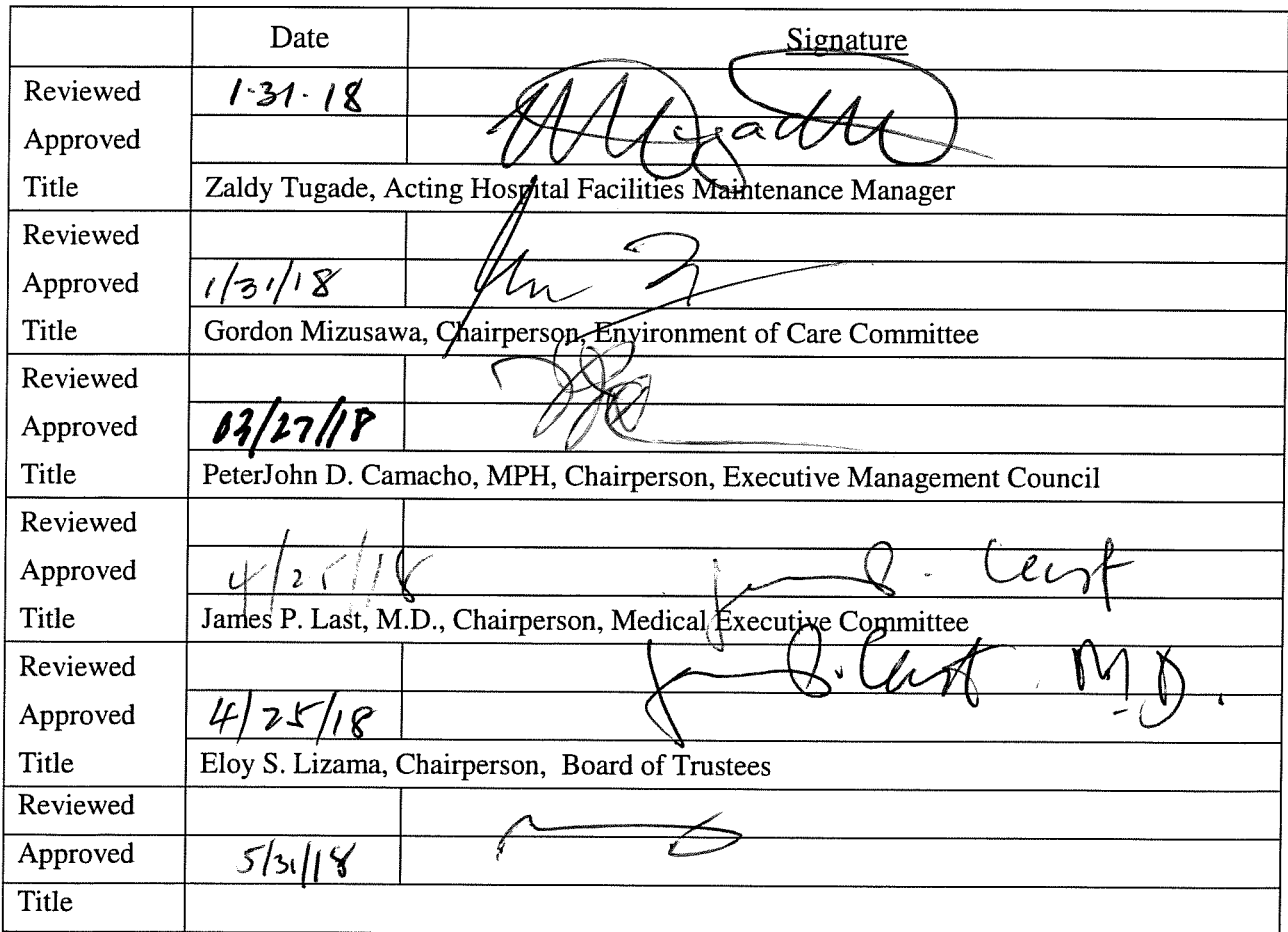 Date Signature
Reviewed 1-31-18
Approved
Title Zaldy Tugade, Acting Hospital Facilities Maintenance Manager
Reviewed
Approved 1/31/18
Title Gordon Mizusawa, Chairperson, Environment of Care Committee
Reviewed
Approved 03/27/18
Title PeterJohn D. Camacho, MPH, Chairperson, Executive Management Council
Reviewed
Approved 4/25/18
Title James P. Last, M.D., Chairperson, Medical Executive Committee
Reviewed M.D.
Approved 4/25/18
Title Eloy S. Lizama, Chairperson, Board of Trustees
Reviewed
Approved 5/31/18
Title